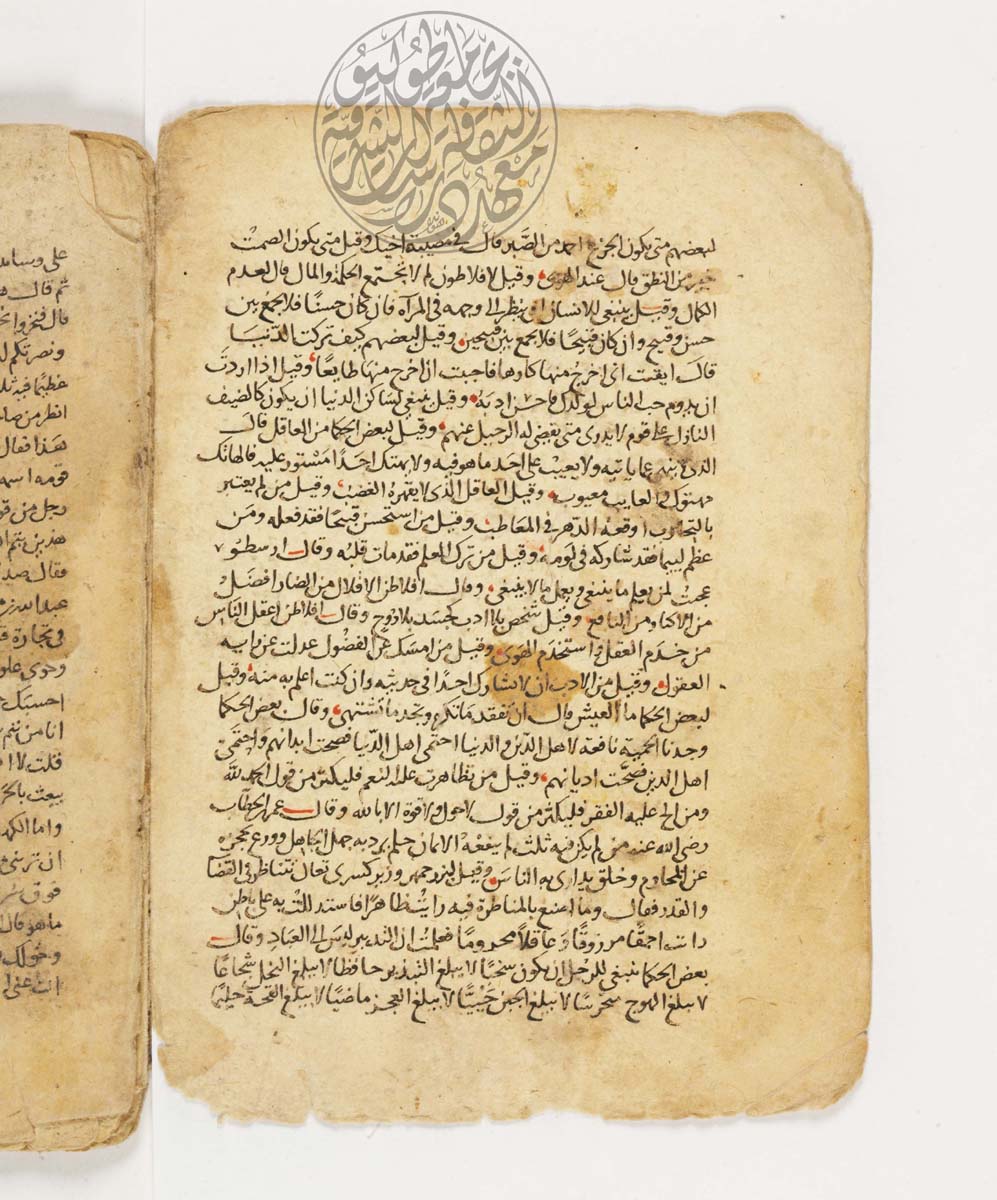 لبعضهم متى يكون الجزع احمد من الصبر قال في مصيبة اخيك وقيل متى يكون الصمت
خير من النطق قال عند الهوى وقيل لافلاطون لم لا تجتمع الحكمة والمال قال لعدم
الكمال وقيل ينبغي للانسان ان ينظر الى وجهه في المرآة فان كان حسنًا فلا يجمع بين
حسن وقبيح وان كان قبيحًا فلا يجمع بين قبيحين وقيل لبعضهم كيف تركت الدنيا
قال ايقنت اني اخرج منها كارها فاحببت ان اخرج منها طايعًا وقيل اذا اردت
ان يدوم حب الناس لولدك فاحسن ادبه وقيل ينبغي لساكن الدنيا ان يكون كالضيف
النازل على قوم لا يدري متى يقضي له الرحيل عنهم وقيل لبعض الحكما من العاقل قال
الذي ينهى عما ياتيه ولا يعيب على احد ما هو فيه ولا يهتك احدًا مستور عليه فالهاتك
مهتوك والعايب معيوب وقيل العاقل الذي لا يقهره الغضب وقيل من لم يعتبر
بالتجارب اوقعه الدهر في المعاطب وقيل من استحسن قبيحًا فقد فعله ومن
عظم لييما فقد شاركه في لومه وقيل من ترك العلم فقد مات قلبه وقال ارسطو
عجبت لمن يعلم ما ينبغي ويعمل ما لا ينبغي وقال افلاطن الاقلال من الضار افضل
من الاكثار من النافع وقيل شخص بلا ادب كجسد بلا روح وقال افلاطن اعقل الناس
من خدم العقل واستخدم الهوى وقيل من امسك عن الفضول عدلت عن رايه
العقول وقيل من الادب ان لا تشارك احدًا في حديثه وان كنت اعلم به منه وقيل
لبعض الحكما ما العيش قال ان تفقد ما تكره وتجد ما تشتهي وقال بعض الحكما
وجدنا الحمية نافعة لاهل الدين والدنيا احتمى اهل الدنيا فصحت ابدانهم واحتمى
اهل الدين فصحت اديانهم وقيل من تظاهرت عليه النعم فليكثر من قول الحمد لله
ومن الح عليه الفقر فليكثر من قول لا حول ولا قوة الا بالله وقال عمر بن الخطاب
رضي الله عنه من لم يكن فيه ثلث لم ينفعه الايمان حلم يرد به جهل الجاهل وورع يحجزه
عن المحارم وخلق يداري به الناس وقيل لبزرجمهر وزير كسرى تعال نتناظر في القضا
والقدر فقال وما اصنع بالمناظرة فيه رايت ظاهرًا فاستدللت به على باطن
رايت احمقًا مرزوقًا وعاقلاً محرومًا فعلمت ان التدبير ليس الى العباد وقال
بعض الحكما ينبغي للرجل ان يكون سخيًا لا يبلغ التبذير حافظا لا يبلغ البخل شجاعًا
لا يبلغ الهوج محترسًا لا يبلغ الجبن حييًا لا يبلغ العجز ماضيًا لا يبلغ القحة حليمًا